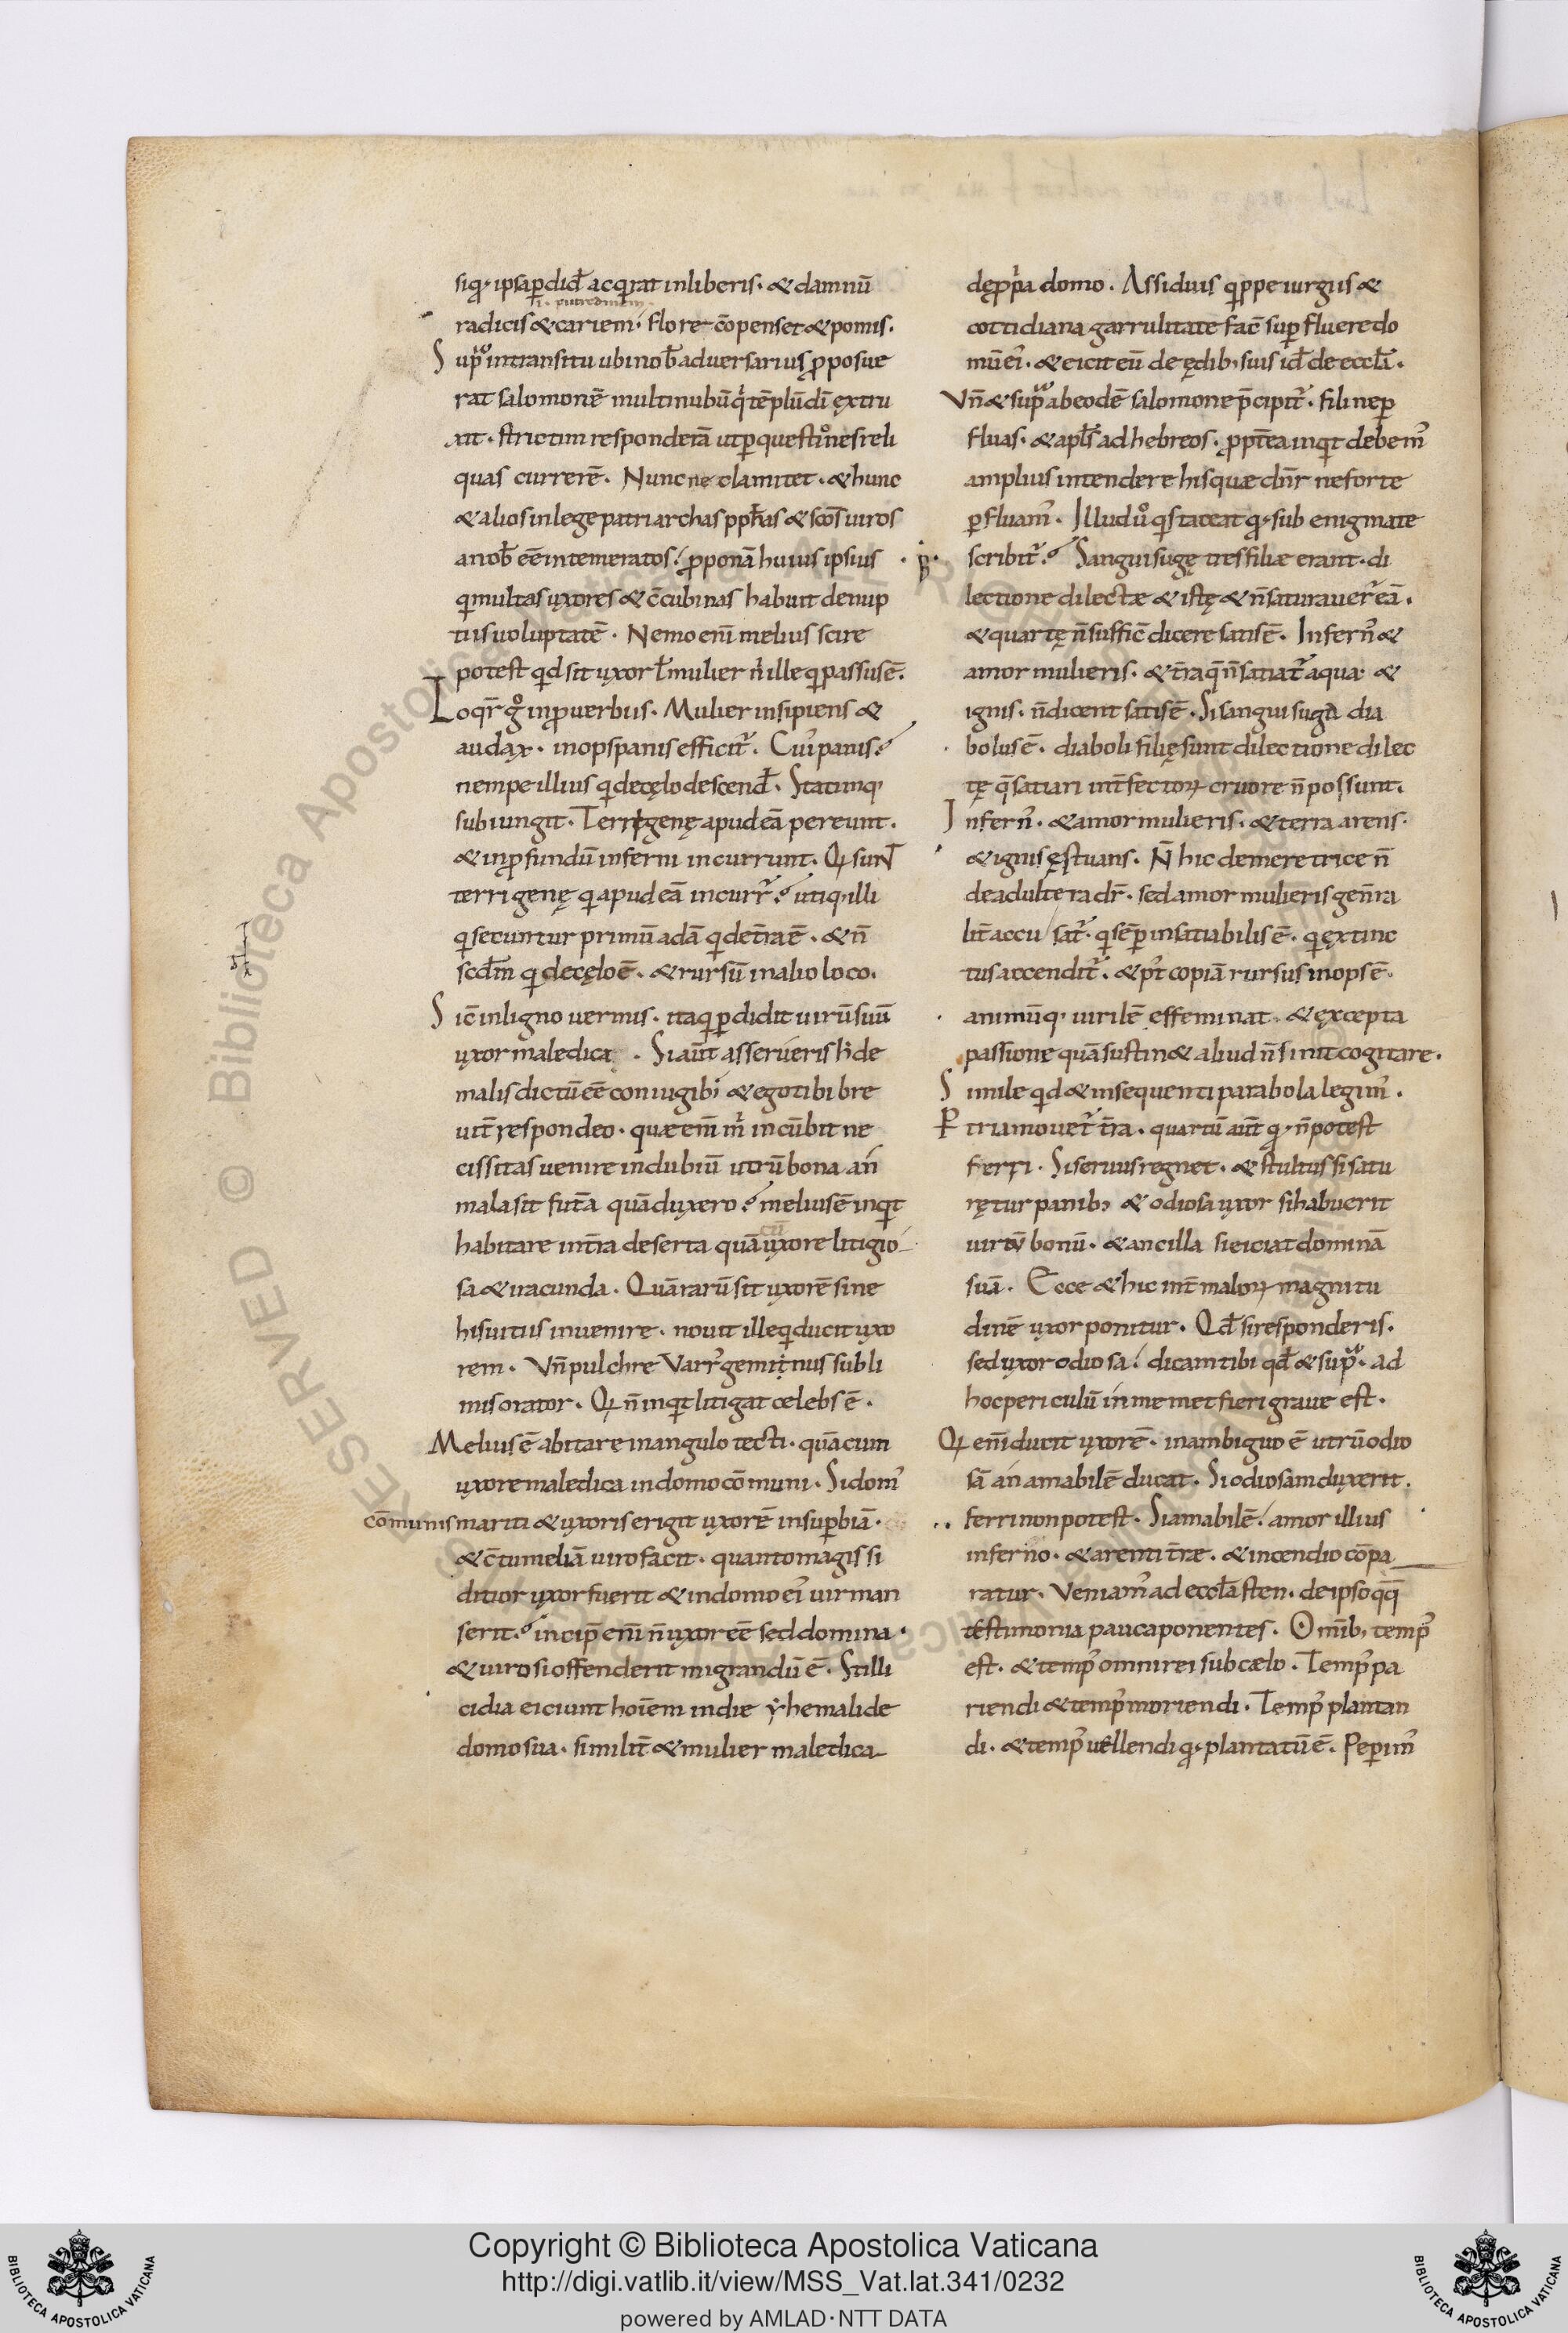 siq̄ ipsa ꝑdid̄ acq̇rat in liberis · & damnū
.i. putredinem
radicis & cariem · flore cōpenset & pomis ·
Supͣ in transitu ubi nob̄ adversarius ꝓposue
rat salomonē multinubū q̇ tēplū dī ęxtru
xit · strictim responderā ut ꝑ questiones reli
quas currerē · Nunc ne clamitet · & hunc
& alios in lege patriarchas ꝓph̄as & sc̄os viros
a nob̄ eē intemeratos ꝓponā huius ipsius
qi multas uxores & c̄cubinas habuit de nup
tiis voluptatē · Nemo eni̅ melius scire
potest qid sit uxor ł mulier n̍ ille qi passus ē ·
Loqr̄ gͦ in ꝓverbiis · Mulier insipiens &
audax · inops panis efficit᷑ · Cui᷒ panis
nempe illius qi de cęlo descend̄ · Statimq;
subiungit · Terrigenę apud eā pereunt ·
& in ꝓfundū inferni incurrunt · Qi sunt
terrigenę qi apud eā incurr᷑ utiq; illi
qi secuntur primū adā qi de t̄ra ē · & n̄
sc̄dm qi de cęlo ē · & rursū in alio loco ·
Sic̄ in ligno vermis · ita qi ꝑdidit virū suū
uxor maledica · Si aut̄ asserveris h̍ de
malis dictū eē coniugib; & ego tibi bre
vit̄ respondeo · quæ eni̅ m̍ incūbit ne
cissitas venire in dubiū utrū bona an
mala sit fut̄a quā duxero melius ē inqit
cū
habitare in t̄ra deserta quā uxore litigio
sa & iracunda · Quā rarū sit uxorē sine
his vitiis invenire · novit ille qi ducit uxo
rem · Vn̄ pulchre Varr᷒ geminus subli
mis orator · Qi n̄ inqit litigat celebs ē ·
Melius ē abitare in angulo tecti · quā cum
uxore maledica in domo cōmuni · Si dom᷒
cōmunis mariti & uxoris erigit uxorē in suꝑbiā ·
& c̄tumeliā viro facit · quanto magis si
ditior uxor fuerit & in domo ei᷒ vir man
serit · incip̄ eni̅ n̄ uxor eē sed domina ·
& viro si offenderit migrandū ē · Stilli
cidia eiciunt hoīem in die yhemali de
domo sua · similit̄ & mulier maledica
de ꝓp̍a domo · Assiduis qippe iurgiis &
cottidiana garrulitate fac̄ suꝑfluere do
mū ei᷒ · & eicit eū de ędib; suis id̄ de eccl̄a ·
Vn̄ & supͣ ab eodē salomone p̄cipit᷑ · fili ne ꝑ
fluas · & apl̄s ad hebreos · ꝓpt̄ea inqit debem᷒
amplius intendere his quæ dn̄r ne forte
ꝑfluam᷒ · Illud vͦ qis taceat qd sub enigmate
scribit᷑ Sanguisugę tres filiæ erant · di
lectione dilectæ & istę & n̄ saturaver᷑ eā ·
& quartę n̄ suffic̄ dicere satis ē · Infern᷒ &
amor mulieris · & t̄ra q̄ n̄ satiat᷑ aqua · &
ignis · n̄ dicent satis ē · Si sanguisuga dia
bolus ē · diaboli filię sunt dilectione dilec
tę q̄ satiari int̄fectoꝝ cruore n̄ possunt ·
Infern᷒ · & amor mulieris · & terra arens ·
& ignis ęstuans · N̄ hic de meretrice n̄
de adultera dr̄ · sed amor mulieris gen̄ra
lit̄ accusat᷑ · qi sēꝑ insatiabilis ē · qi extinc
tus accendit᷑ · & pt̍ copiā rursus inops ē ·
animūq; virilē effeminat · & excepta
passione quā sustin& aliud n̄ sinit cogitare ·
Simile qid & in sequenti parabola legim᷒ ·
P tria movet᷑ t̄ra · quartū aut̄ qd n̄ potest
ferri · Si servus regnet · & stultus si satu
rętur panib; & odiosa uxor si habuerit
virū bonū · & ancilla si eiciat dominā
suā · Ecce & hic int̄ maloꝝ magnitu
dinē uxor ponitur · Qd̄ si responderis ·
sed uxor odiosa dicam tibi qd̄ & supͣ · ad
hoc periculū in me met fieri grave est ·
Qi eni̅ ducit uxorē · in ambiguo ē utrū odio
sā an amabilē ducat · Si odiosam duxerit ·
ferri non potest · Si amabilē amor illius
inferno · & arenti t̄ræ · & incendio cōpa
ratur · Veniam᷒ ad eccl̄asten · de ipso q̄q̄
testimonia pauca ponentes · Om̄ib; temp᷒
est · & temp᷒ omni rei sub cælo · Temp᷒ pa
riendi & temp᷒ moriendi · Temp᷒ plantan
di · & temp᷒ vellendi qd plantatū ē · Peꝑim᷒
Copyright © Biblioteca Apostolica Vaticana
http://digi.vatlib.it/view/MSS_Vat.lat.341/0232
powered by AMLAD·NTT DATA
BIBLIOTECA APOSTOLICA VATICANA
BIBLIOTECA APOSTOLICA VATICANA